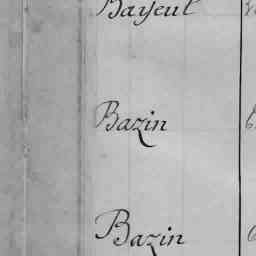 Bayeul
Bazin
Bazin